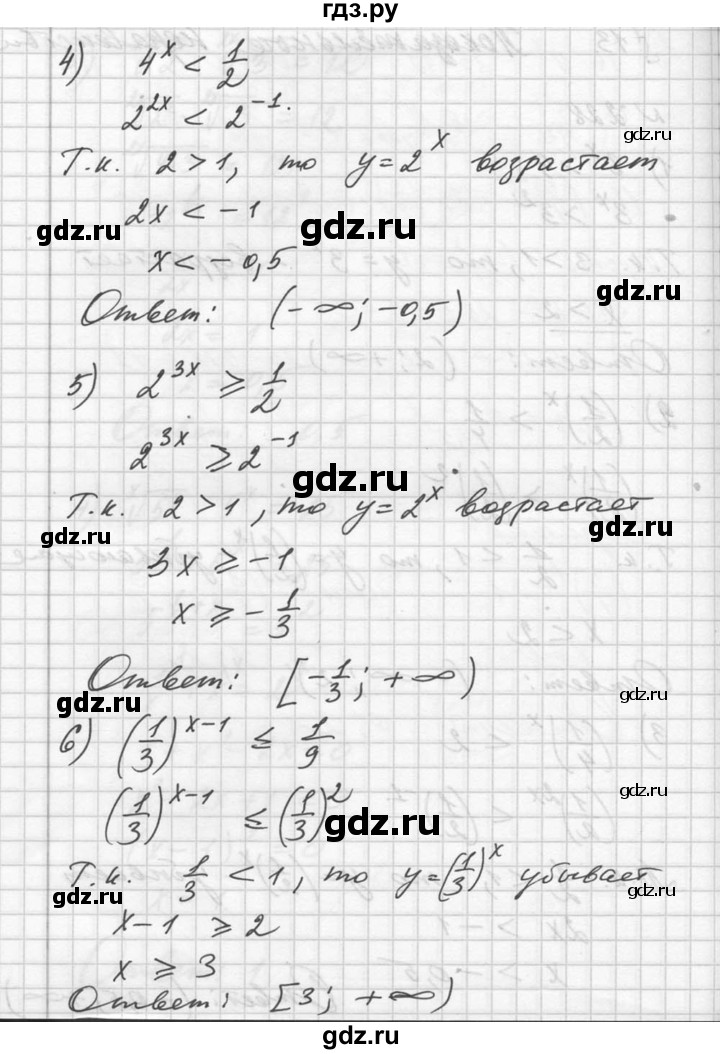 гдз.ру
4) 4^x < 1/2
2^{2x} < 2^{-1}.
gdz.ru
Т.к. 2 > 1, то y = 2^x возрастает
gdz.ru
2x < -1
gdz.ru
gdz.ru
x < -0,5
gdz.ru
Ответ: (-∞; -0,5)
5) 2^{3x} ⩾ 1/2
2^{3x} ⩾ 2^{-1}
gdz.ru
Т.к. 2 > 1, то y = 2^x возрастает
gdz.ru
gdz.ru
3x ⩾ -1
x ⩾ -1/3
gdz.ru
Ответ: [-1/3; +∞)
gdz.ru
gdz.ru
6) (1/3)^{x-1} ≤ 1/9
gdz.ru
(1/3)^{x-1} ≤ (1/3)^2
gdz.ru
Т.к. 1/3 < 1, то y = (1/3)^x убывает
gdz.ru
gdz.ru
x-1 ⩾ 2
x ⩾ 3
Ответ: [3; +∞)
gdz.ru
gdz.ru